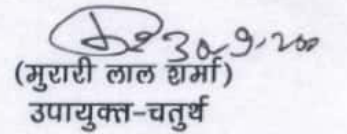 30.9.200
(मुरारी लाल शर्मा)
उपायुक्त-चतुर्थ